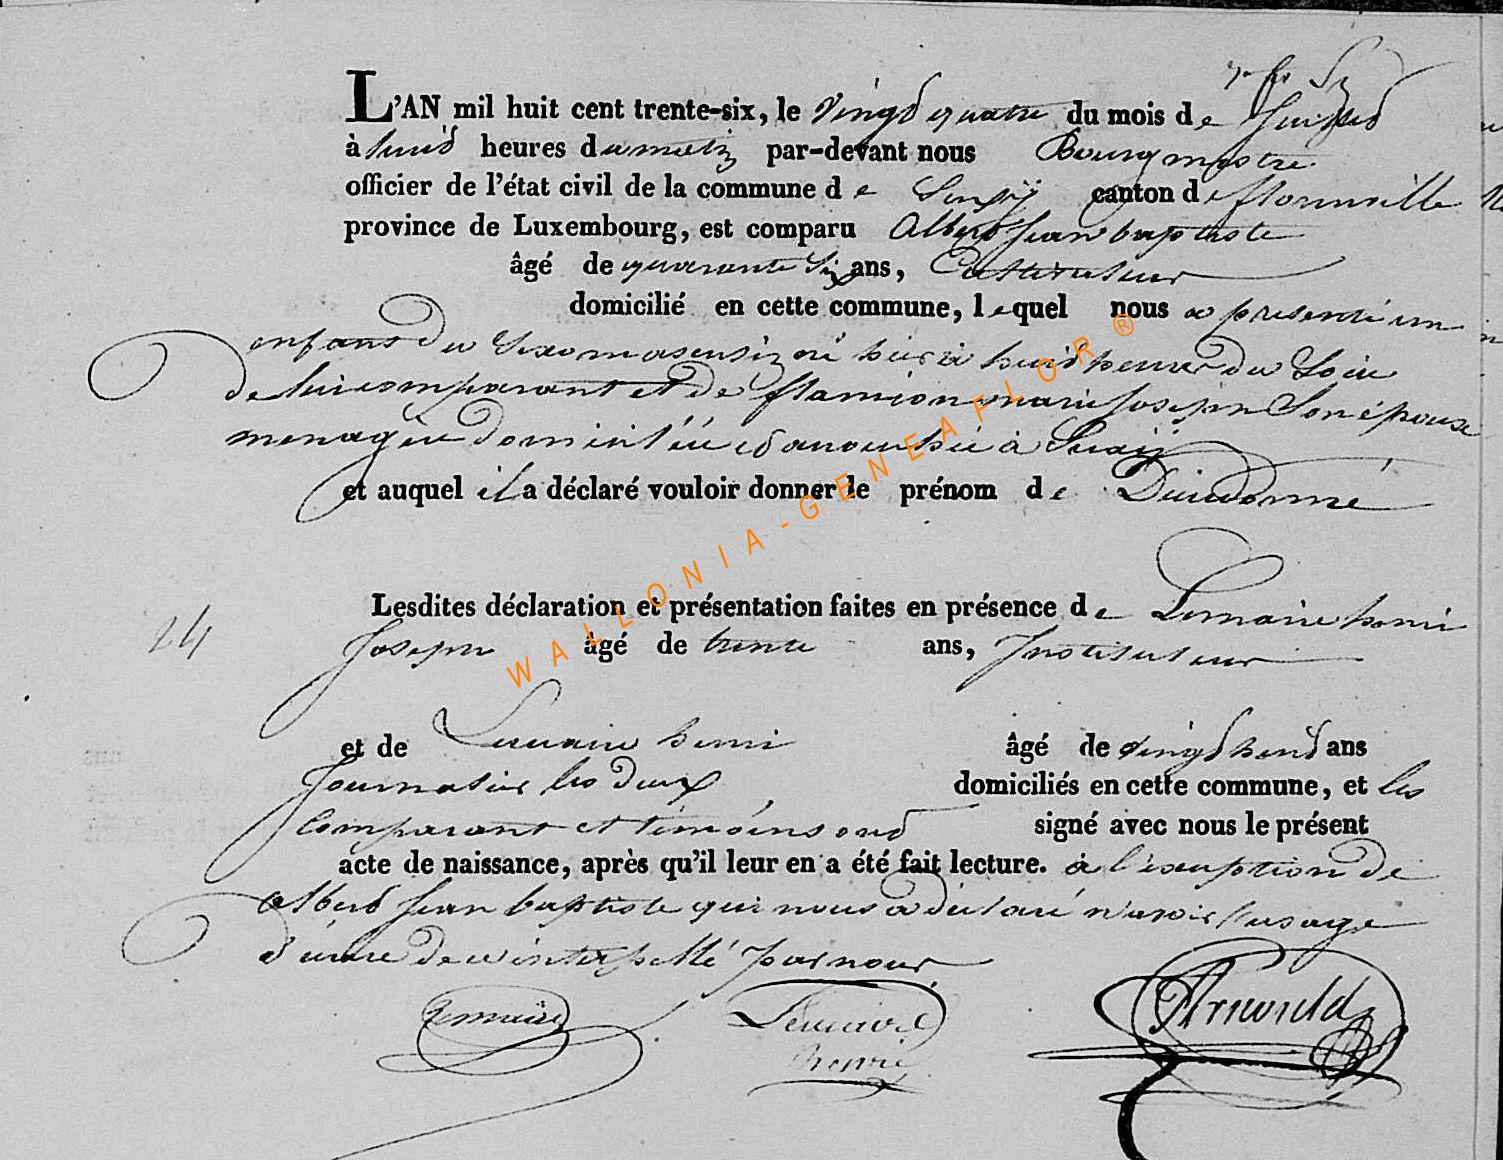 L'AN mil huit cent trente-six, le vingd quatre du mois de Juilled
à huid heures du matin par-devant nous Bourgmestre
officier de l'état civil de la commune de canton de florenville
province de Luxembourg, est comparu Alberd Jean baptiste
âgé de quarante six ans, Cultivateur
domicilié en cette commune, lequel nous a presenté un
enfant du Sexe masculin né hier à huid heures du Soir
de lui comparant et de flamion marie Joseph Son épouse
menagère domiciliée à
et auquel il a déclaré vouloir donner le prénom de Dieudonné
Lesdites déclaration et présentation faites en présence de Lemaire henri
24 Joseph àgé de trente ans, Instituteur
et de Lemaire henri âgé de vingd huid ans
Journalier les deux domiciliés en cette commune, et les
Comparant et témoins ond signé avec nous le présent
acte de naissance, après qu'il leur en a été fait lecture. à l'exception de
alberd Jean baptiste qui nous a déclaré n'avoir l'usage
d'écrire de ce interpellé par nous
Lemaire Lemaire
henri
WALLONIA-GENEAFLOR ®